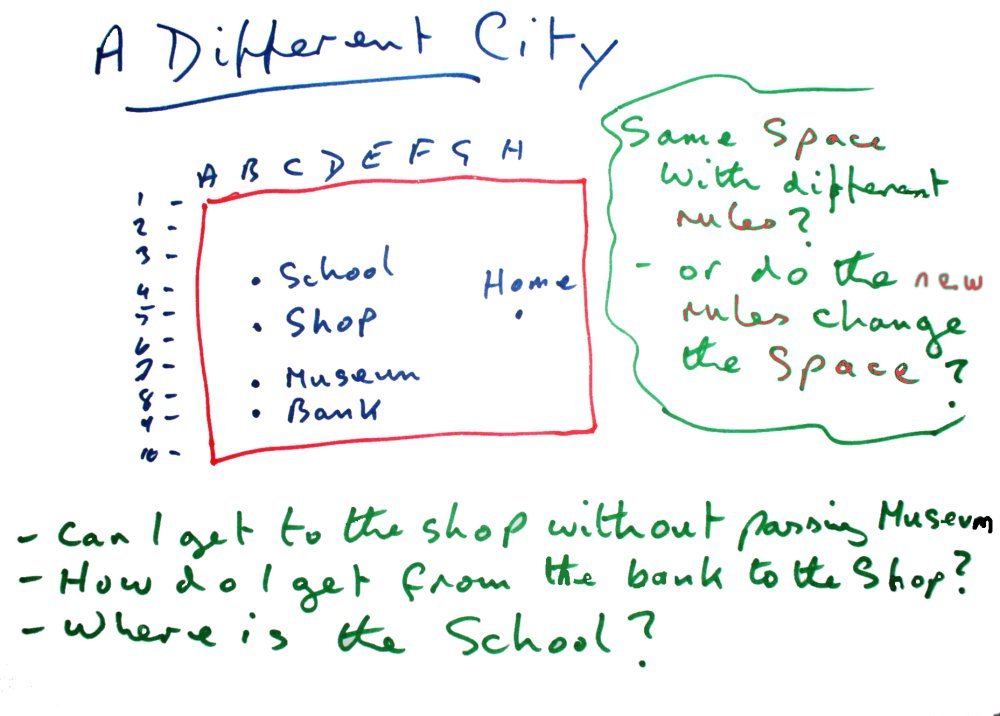 A Different City
A B C D E F G H
1 -
2 -
3 -
4 -
5 -
6 -
7 -
8 -
9 -
10 -
• School
Home
• Shop
• Museum
• Bank
Same Space
with different
rules?
- or do the new
rules change
the Space?
- Can I get to the shop without passing Museum
- How do I get from the bank to the Shop?
- Where is the School?